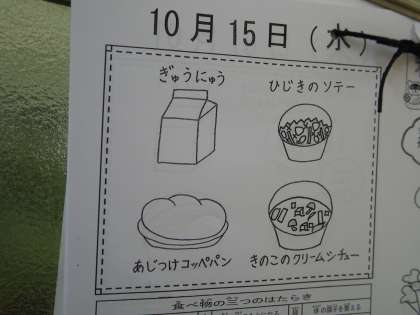 10月15日(水)
ぎゅうにゅう
ひじきのソテー
あじつけコッペパン
きのこのクリームシチュー
食べ物の三つのはたらき